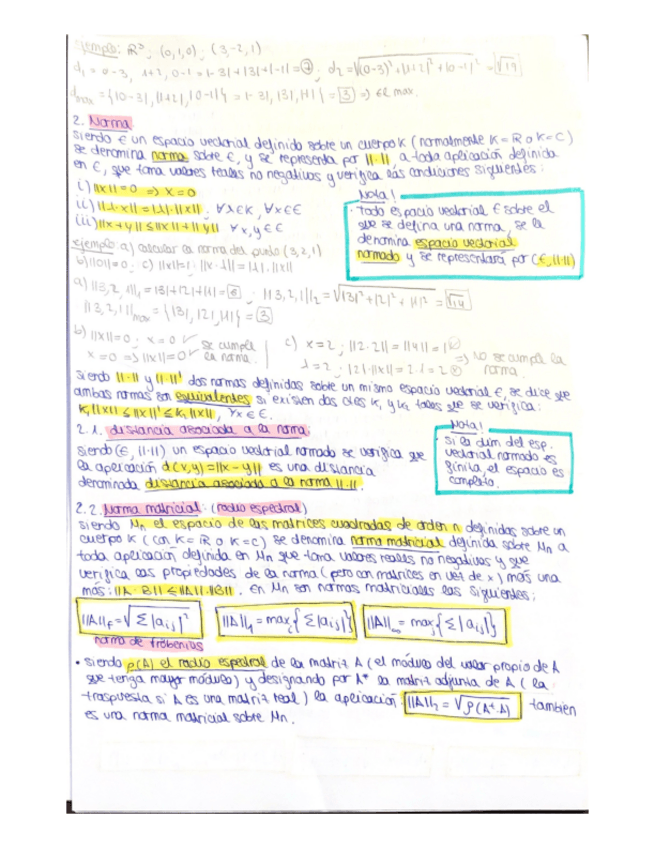 Ejemplo: ℝ³; (0,1,0); (3,-2,1)
d₁ = 0-3, 1+2, 0-1 = |-3|+|3|+|-1| = 7; d₂ = √((0-3)²+(1+2)²+(0-1)²) = √19
dmax = {|0-3|, |1+2|, |0-1|} = |-3|, |3|, |-1|} = 3 => el max.
2. Norma
siendo E un espacio vectorial definido sobre un cuerpo K (normalmente K=ℝ o K=C)
se denomina norma sobre E, y se representa por ||·||, a toda aplicación definida
en E, que toma valores reales no negativos y verifica las condiciones siguientes:
i) ||x||=0 => x=0
ii) ||λ·x||=|λ|·||x||; ∀λ∈K, ∀x∈E
iii) ||x+y|| ≤ ||x||+||y|| ∀x,y∈E
Nota!
· todo espacio vectorial E sobre el
que se defina una norma, se le
denomina espacio vectorial
normado y se representará por (E,||·||)
ejemplo: a) calcular la norma del punto (3,2,1)
b) ||0||=0; c) ||x||=1; ||x·λ||=|λ|·||x||
a) ||3,2,1||₁ = |3|+|2|+|1| = 6; ||3,2,1||₂ = √(|3|²+|2|²+|1|²) = √14
||3,2,1||max = {|3|,|2|,|1|} = 3
b) ||x||=0; x=0 ✓ se cumple
x=0 => ||x||=0 ✓ la norma.
c) x=2; ||2·2||=||4||=1
λ=2; |2|·||x||=2·1=2 => No se cumple la
norma.
siendo ||·|| y ||·||' dos normas definidas sobre un mismo espacio vectorial E, se dice que
ambas normas son equivalentes si existen dos ctes K₁ y K₂ tales que se verifica:
K₁||x|| ≤ ||x||' ≤ K₂||x||, ∀x∈E.
2.1. distancia asociada a la norma
siendo (E, ||·||) un espacio vectorial normado se verifica que
la aplicación d(x,y)=||x-y|| es una distancia
denominada distancia asociada a la norma ||·||.
Nota!
· si la dim del esp.
vectorial normado es
finita, el espacio es
completo.
2.2. Norma matricial: (radio espectral)
siendo Mn el espacio de las matrices cuadradas de orden n definidas sobre un
cuerpo K (con K=ℝ o K=C) se denomina norma matricial definida sobre Mn a
toda aplicación definida en Mn que toma valores reales no negativos y que
verifica las propiedades de la norma (pero con matrices en vez de x) más una
más: ||A·B|| ≤ ||A||·||B||. en Mn son normas matriciales las siguientes:
||A||F = √Σ|aij|² ||A||₁ = maxj{Σ|aij|} ||A||∞ = maxi{Σ|aij|}
norma de frobenius
• siendo ρ(A) el radio espectral de la matriz A (el módulo del valor propio de A
que tenga mayor módulo) y designando por A* la matriz adjunta de A (la
traspuesta si A es una matriz real) la aplicación: ||A||₂ = √ρ(A*·A) tambien
es una norma matricial sobre Mn.